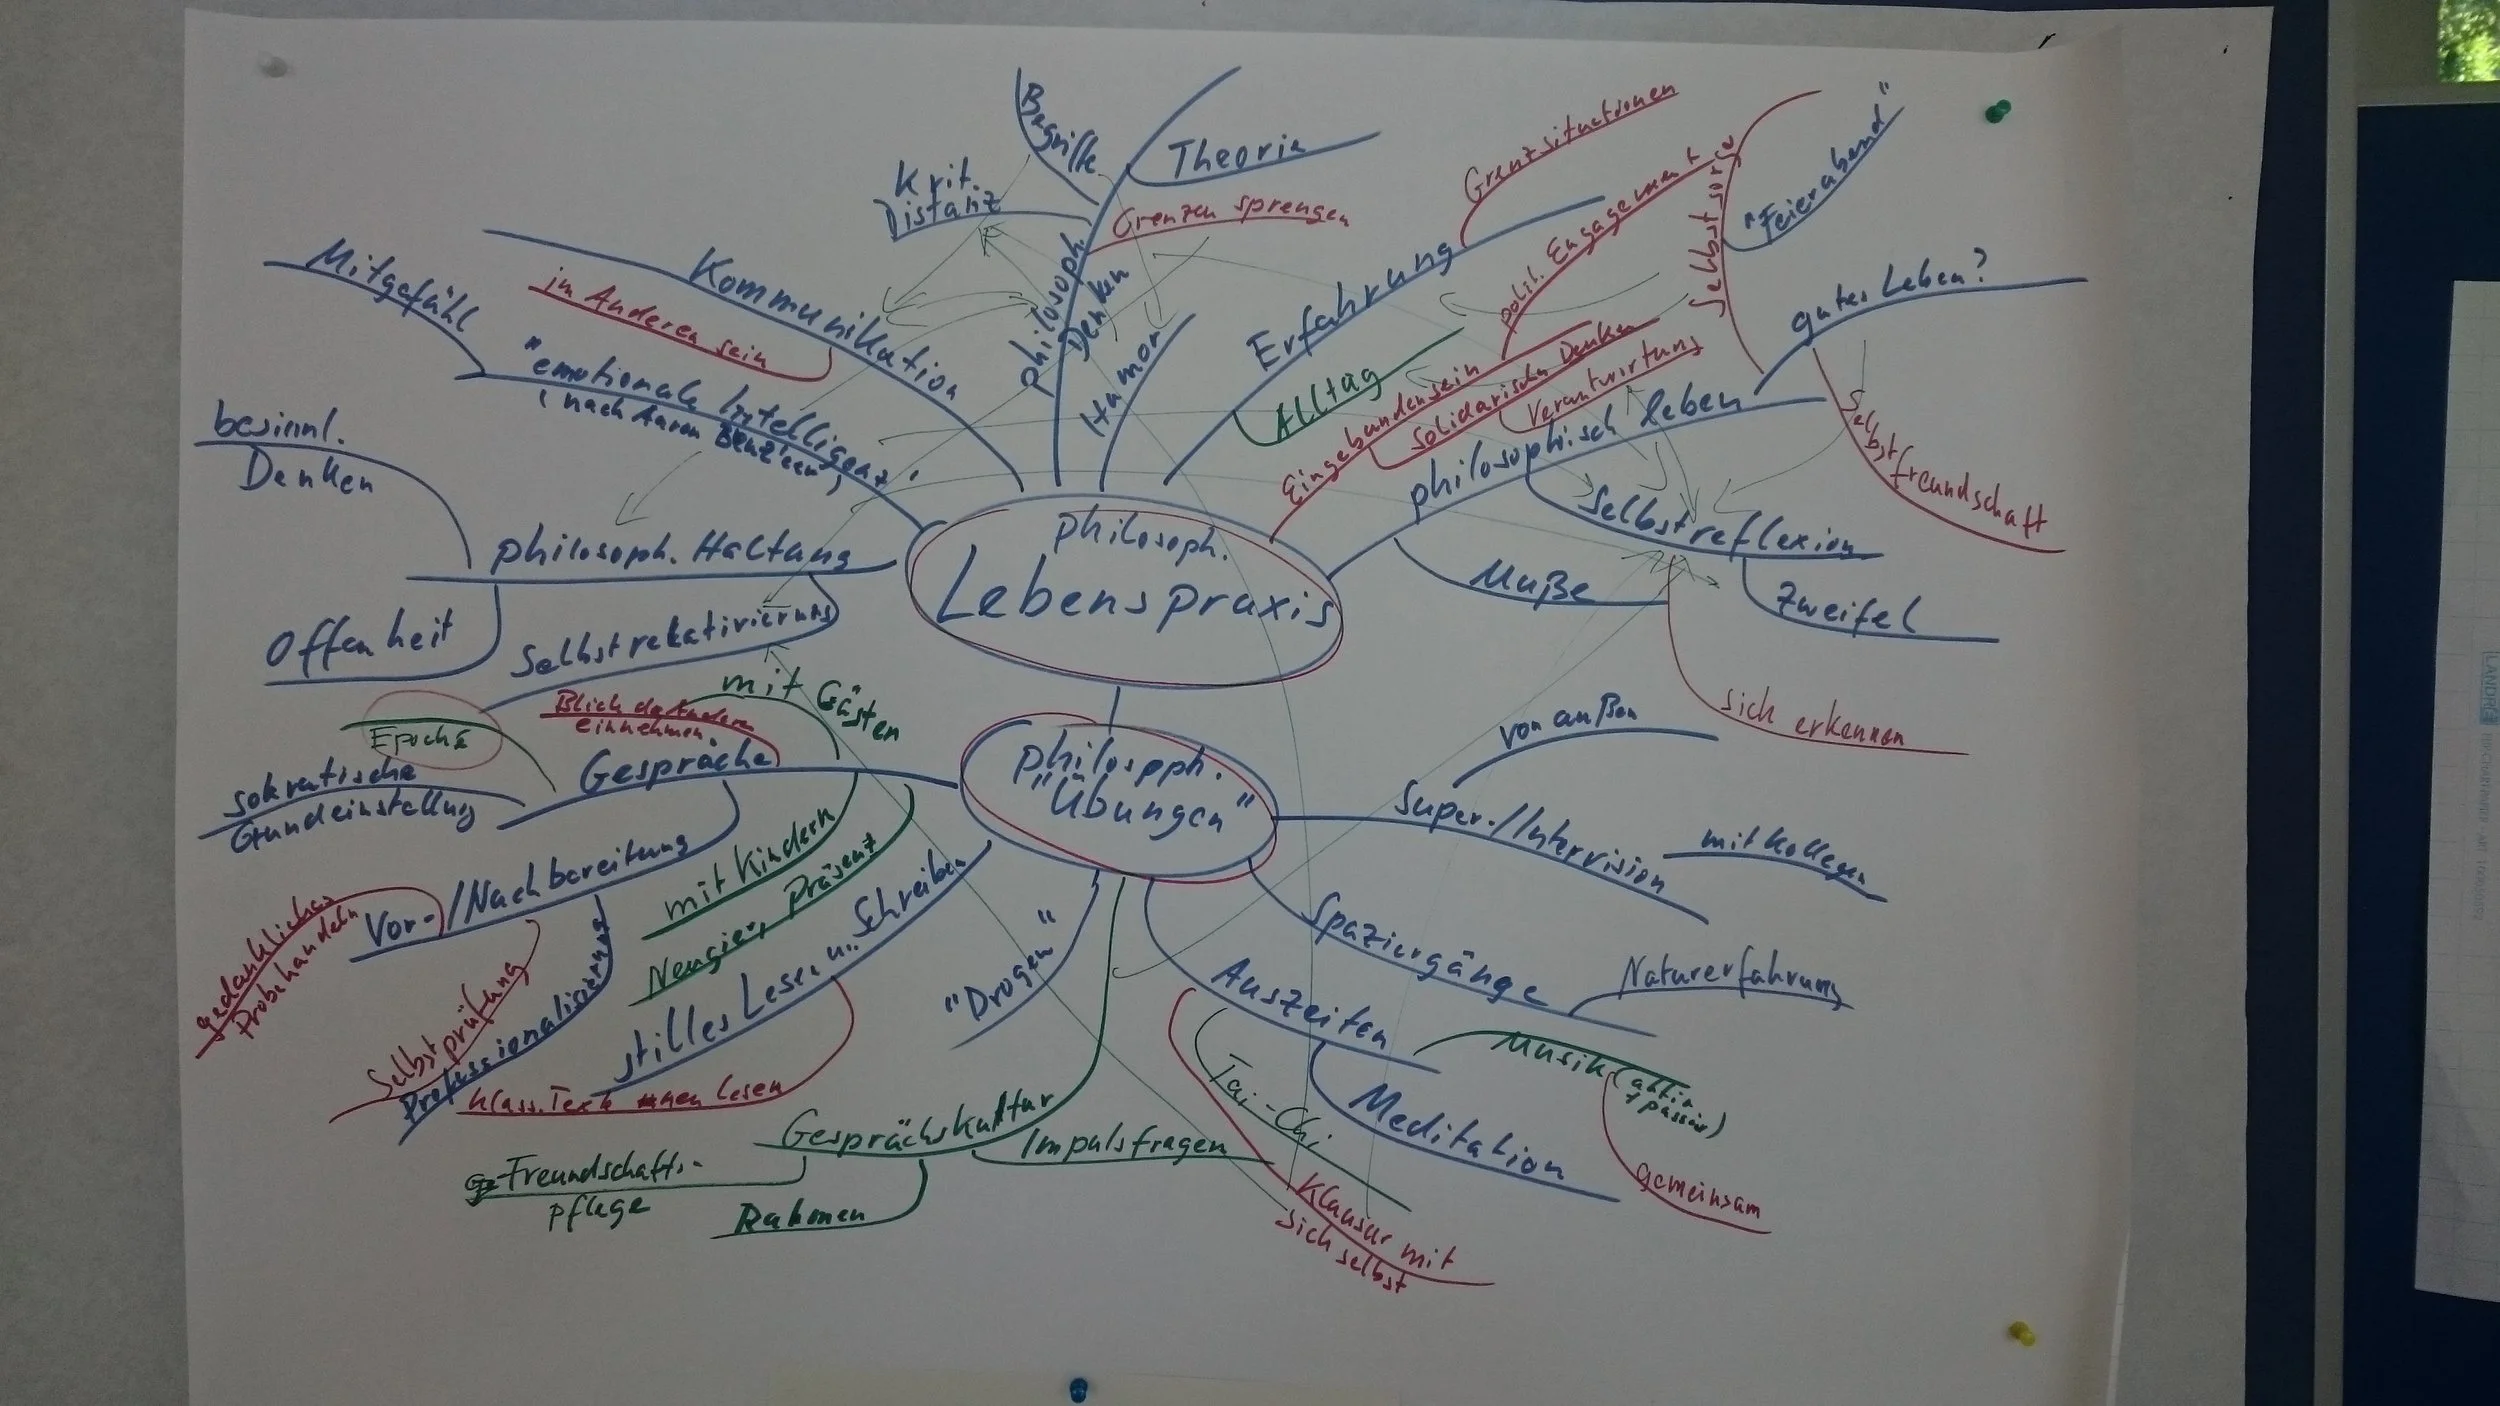 Begriffe
Theorie
Krit.
Distanz
Grenzen sprengen
philosoph.
Denken
Humor
Grenzsituationen
Erfahrung
Alltag
polit. Engagement
Selbstsorge
"Feierabend"
gutes Leben?
Selbstfreundschaft
Eingebundensein
solidarisches Denken
Verantwortung
philosophisch leben
Selbstreflexion
Muße
Zweifel
sich erkennen
Kommunikation
im Anderen sein
Mitgefühl
"emotionale Intelligenz"
(nach Aaron
besinnl.
Denken
philosoph. Haltung
Offenheit
Selbstrelativierung
philosoph.
Lebenspraxis
philosoph.
"Übungen"
mit Gästen
Blick des Anderen
einnehmen
Epoché
Gespräche
sokratische
Grundeinstellung
Vor-/Nachbereitung
gedankliches
Probehandeln
Selbstprüfung
Professionalisierung
mit Kindern
Neugier, Präsenz
stilles Lesen u. Schreiben
klass. Texte lesen
"Drogen"
Gesprächskultur
Impulsfragen
Freundschafts-
pflege
Rahmen
von außen
Super-/Intervision
mit Kollegen
Spaziergänge
Naturerfahrung
Auszeiten
Musik (aktiv
+ passiv)
gemeinsam
Meditation
Tai-Chi
Klausur mit
sich selbst